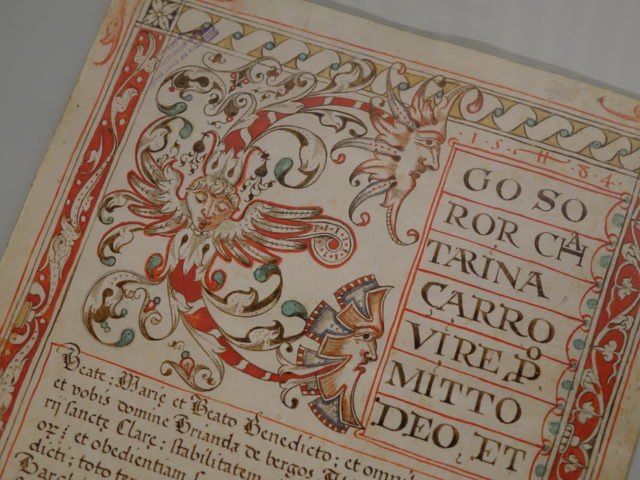 15 H 84
GO SO
ROR CA
TARINA
CARRO
VIRE, P.
MITTO
DEO, ET
Beate: Marie et Beato Benedicto: et omni
et vobis domine Brianda de bergos,
rij sancte Clare: stabilitatem
et obedientiam
dicti: toto